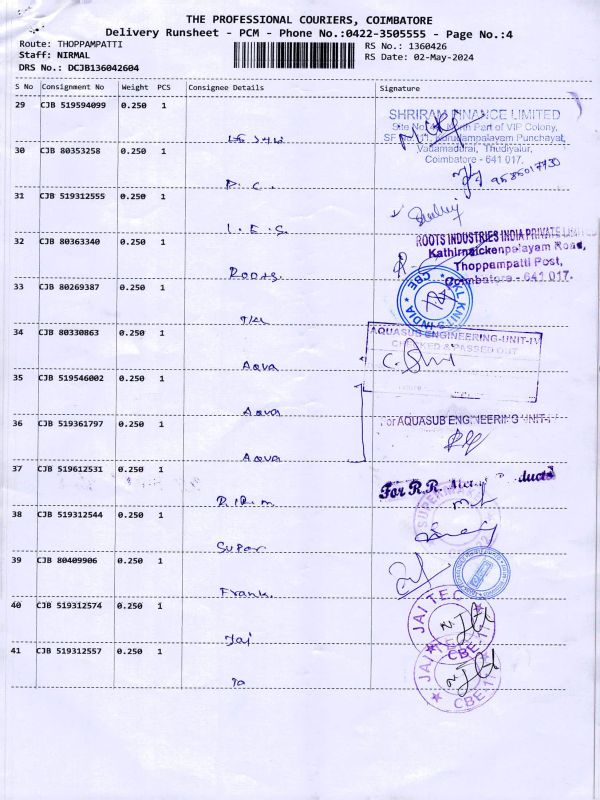 THE PROFESSIONAL COURIERS, COIMBATORE
Delivery Runsheet - PCM - Phone No.:0422-3505555 - Page No.:4
Route: THOPPAMPATTI
RS No.: 1360426
Staff: NIRMAL
RS Date: 02-May-2024
DRS No.: DCJB136042604
S No Consignment No Weight PCS Consignee Details Signature
29 CJB 519594099 0.250 1
SHRIRAM FINANCE LIMITED
Part of VIP Colony,
Vadamadurai, Thudiyalur,
Coimbatore - 641 017.
30 CJB 80353258 0.250 1
P. C.
31 CJB 519312555 0.250 1
I. E. S.
32 CJB 80363340 0.250 1
ROOTS INDUSTRIES INDIA PRIVATE LIMITED
Kathirnaickenpalayam Road,
Thoppampatti Post,
Coimbatore - 641 017.
Roots.
33 CJB 80269387 0.250 1
CBE
34 CJB 80330863 0.250 1
AQUASUB ENGINEERING-UNIT-IV
CHECKED & PASSED OUT
Aqua
35 CJB 519546002 0.250 1
Aqua
36 CJB 519361797 0.250 1
For AQUASUB ENGINEERING UNIT-I
Aqua
37 CJB 519612531 0.250 1
For R.R. Products
38 CJB 519312544 0.250 1
Super
39 CJB 80409906 0.250 1
Frank.
40 CJB 519312574 0.250 1
JAI TEC
CBE-1
Jai
41 CJB 519312557 0.250 1
JAI TE
CBE-1